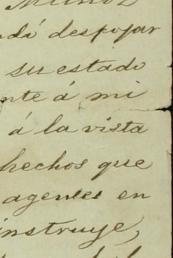 Muñoz
ndó despojar
su estado
nte á mi
á la vista
hechos que
agentes en
instruye,